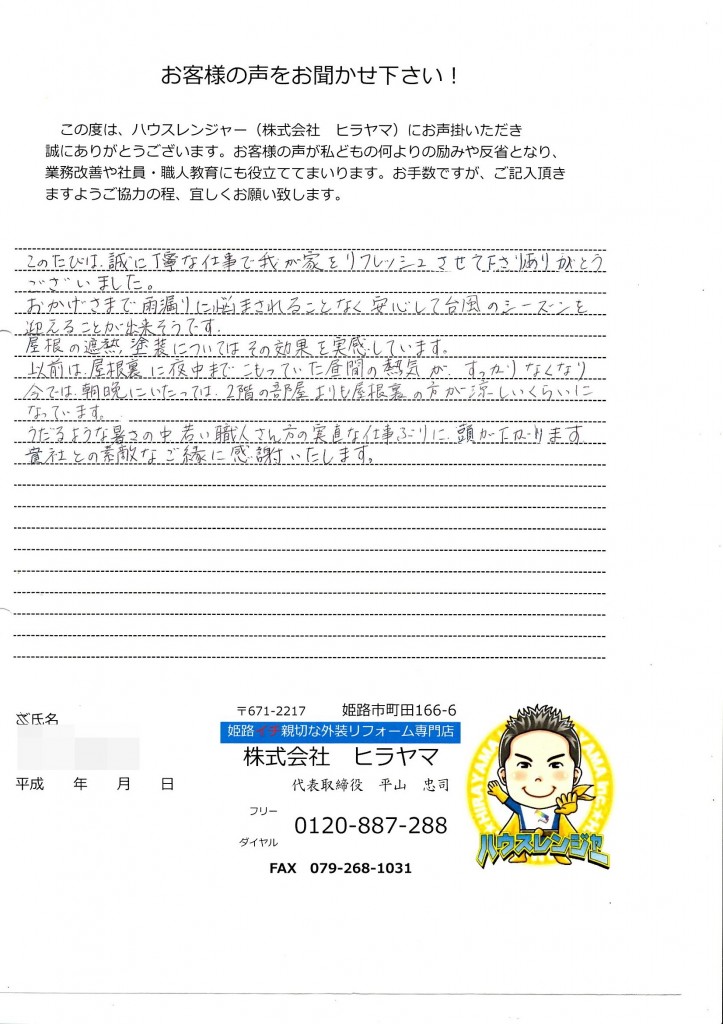 お客様の声をお聞かせ下さい！
この度は、ハウスレンジャー（株式会社　ヒラヤマ）にお声掛いただき
誠にありがとうございます。お客様の声が私どもの何よりの励みや反省となり、
業務改善や社員・職人教育にも役立ててまいります。お手数ですが、ご記入頂き
ますようご協力の程、宜しくお願い致します。
このたびは、誠に丁寧な仕事で我が家をリフレッシュさせて下さりありがとう
ございました。
おかげさまで雨漏りに悩まされることなく安心して台風のシーズンを
迎えることが出来そうです。
屋根の遮熱塗装についてはその効果を実感しています。
以前は、屋根裏に夜中までこもっていた昼間の熱気が、すっかりなくなり
今では、朝晩にいたっては、2階の部屋よりも屋根裏の方が涼しいくらいに
なっています。
うだるような暑さの中、若い職人さん方の実直な仕事ぶりに、頭が下がります
貴社との素敵なご縁に感謝いたします。
〒671-2217　姫路市町田166-6
ご氏名
姫路イチ親切な外装リフォーム専門店
株式会社　ヒラヤマ
平成　年　月　日
代表取締役　平山　忠司
フリー
ダイヤル
0120-887-288
FAX　079-268-1031
HIRAYAMA
ハウスレンジャー